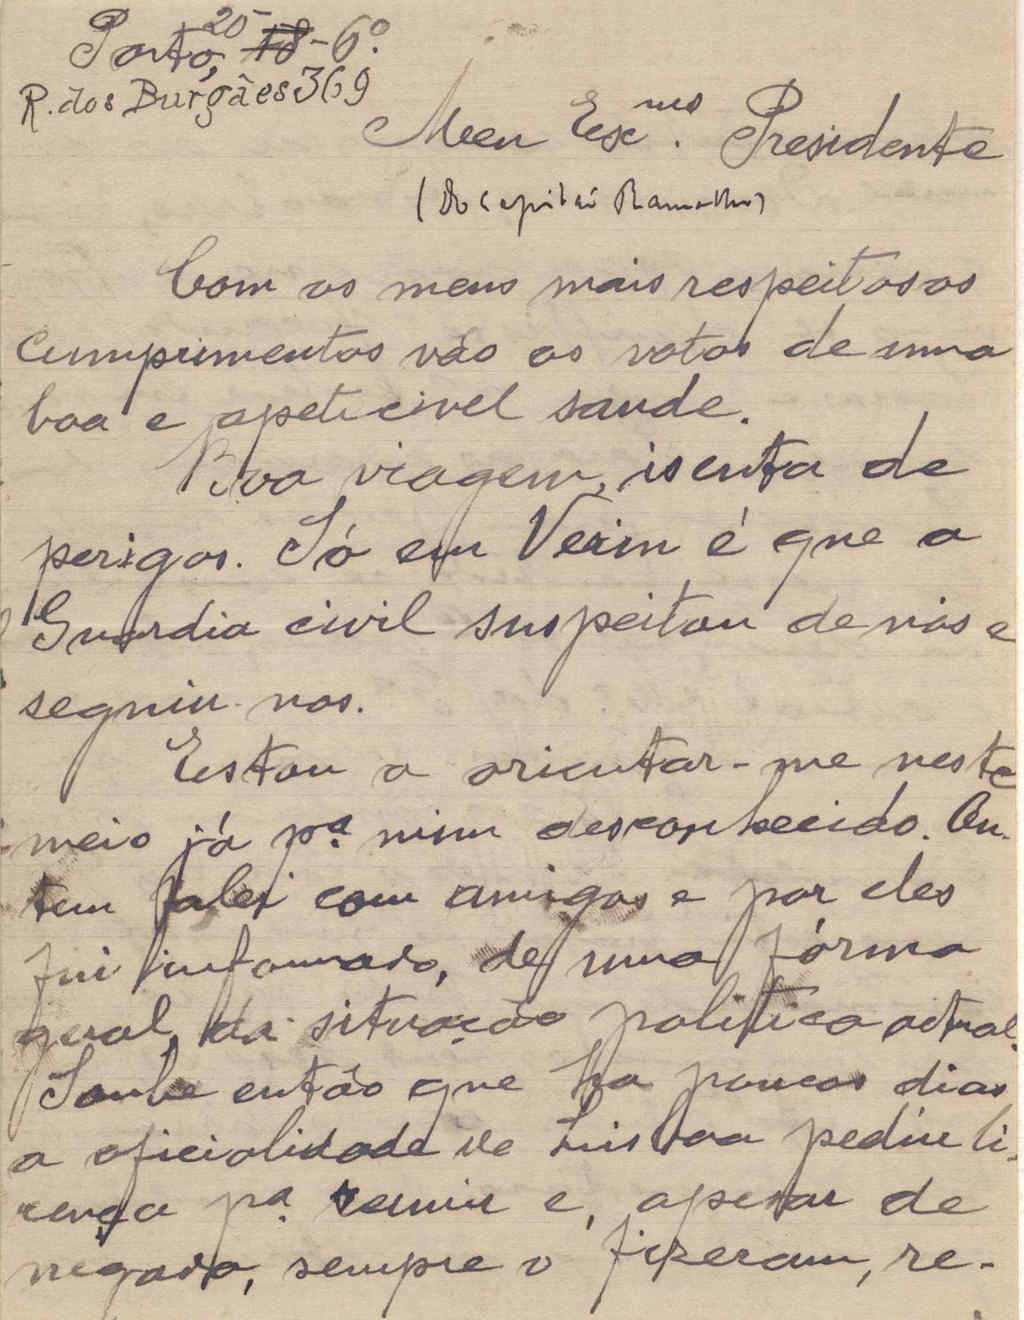 Porto, 20-6º.
R. dos Burgães 369
Meu Exc.mo Presidente
(Do Capitão Ramalho)
Com os meus mais respeitosos
cumprimentos vão os votos de uma
boa e apeticivel saude.
Boa viagem, isenta de
perigos. Só em Verin é que a
Guardia civil suspeitou de nós e
seguiu-nos.
Estou a orientar-me neste
meio já pª. mim desconhecido. On-
tem falei com amigos e por eles
fui informado, de uma fórma
geral, da situação politica actual.
Soube então que ha poucos dias
a oficialidade de Lisboa pediu li-
cença pª. reunir e, apesar de
negada, sempre o fizeram, re-